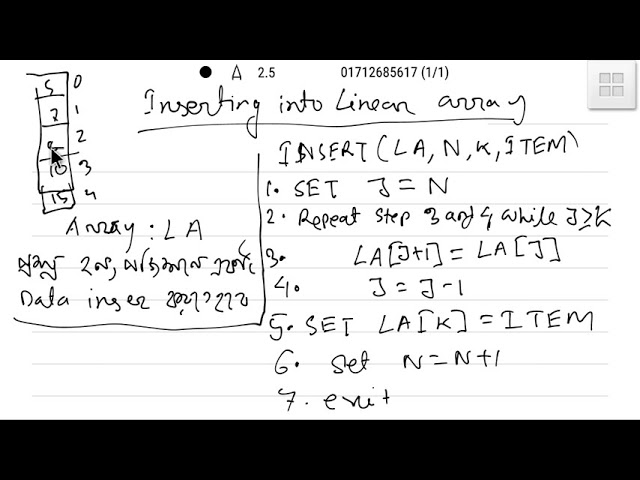 A 2.5 01712685617 (1/1)
Inserting into Linear array
5 0
7 1
2
10 3
15 4
Array : LA
Data inser
INSERT(LA, N, K, ITEM)
1. SET J = N
2. Repeat step 3 and 4 while J ≥ K
3. LA[J+1] = LA[J]
4. J = J-1
5. SET LA[K] = ITEM
6. Set N = N+1
7. exit